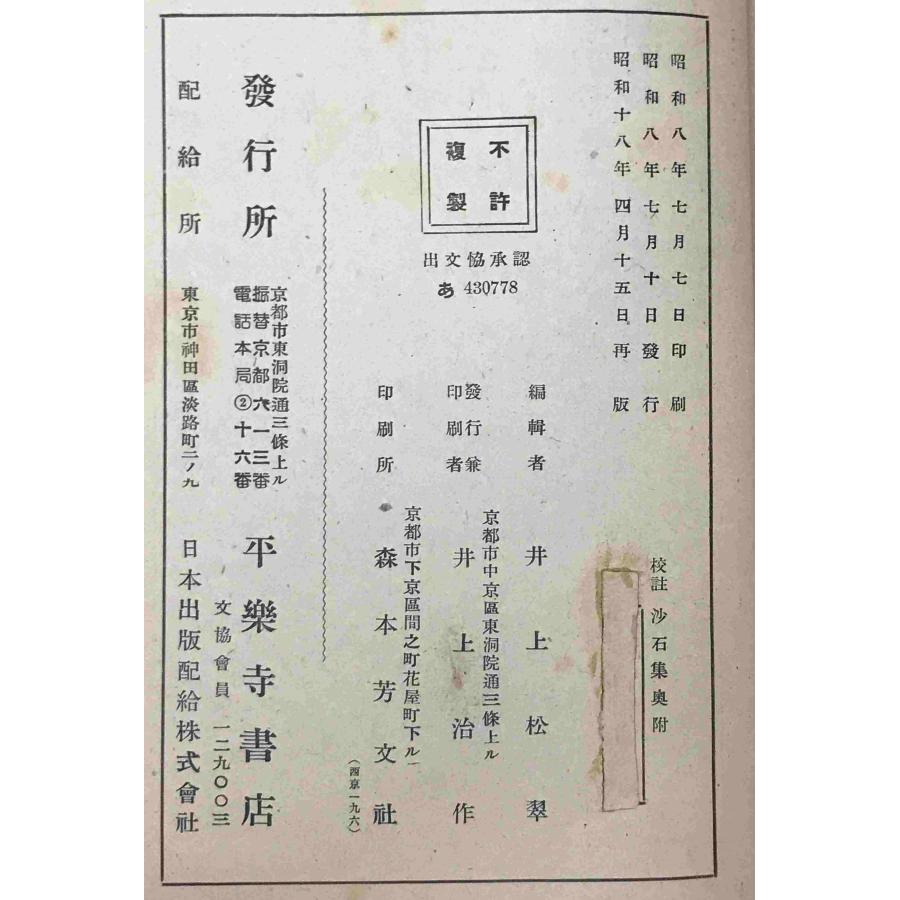 昭和八年七月七日印刷
昭和八年七月十日發行
昭和十八年四月十五日再版
校註 沙石集奧附
不許
複製
出文協承認
あ 430778
編輯者 井上松翠
京都市中京區東洞院通三條上ル
發行兼
印刷者 井上治作
京都市下京區間之町花屋町下ル
印刷所 森本芳文社
(西京一九六)
發行所
京都市東洞院通三條上ル
振替京都六一三番
電話本局②十六番
平樂寺書店
文協會員 一二九〇〇三
配給所 東京市神田區淡路町二ノ九 日本出版配給株式會社